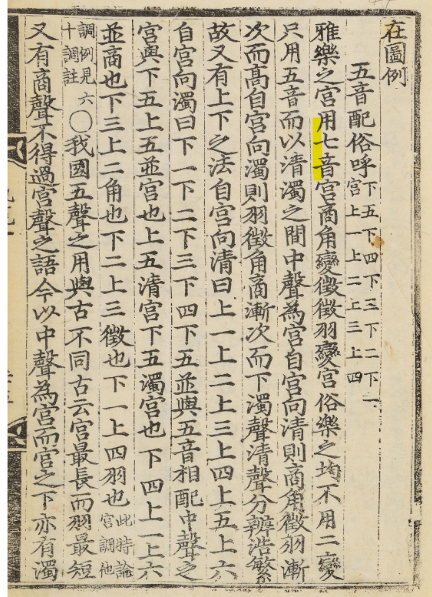 在圖例
五音配俗呼 下五下四下三下二下一
宮上一上二上三上四
雅樂之宮用七音宮商角變徵徵羽變宮俗樂之均不用二變
只用五音而以清濁之間中聲為宮自宮向清則商角徵羽漸
次而高自宮向濁則羽徵角商漸次而下濁聲清聲分辨浩繁
故又有上下之法自宮向清曰上一上二上三上四上五上六
自宮向濁曰下一下二下三下四下五並與五音相配中聲之
宮與下五上五並宮也上五清宮下五濁宮也下四上一上六
並商也下三上二角也下二上三徵也下一上四羽也 此特論
宮調他
調例見六
十調註 ○我國五聲之用與古不同古云宮最長而羽最短
又有商聲不得過宮聲之語今以中聲為宮而宮之下亦有濁